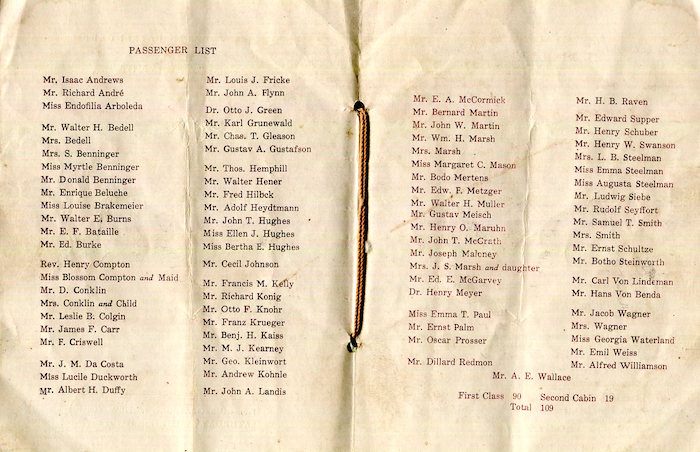 PASSENGER LIST
Mr. Isaac Andrews
Mr. Richard André
Miss Endofilia Arboleda
Mr. Walter H. Bedell
Mrs. Bedell
Mrs. S. Benninger
Miss Myrtle Benninger
Mr. Donald Benninger
Mr. Enrique Beluche
Miss Louise Brakemeier
Mr. Walter E. Burns
Mr. E. F. Bataille
Mr. Ed. Burke
Rev. Henry Compton
Miss Blossom Compton and Maid
Mr. D. Conklin
Mrs. Conklin and Child
Mr. Leslie B. Colgin
Mr. James F. Carr
Mr. F. Criswell
Mr. J. M. Da Costa
Miss Lucile Duckworth
Mr. Albert H. Duffy
Mr. Louis J. Fricke
Mr. John A. Flynn
Dr. Otto J. Green
Mr. Karl Grunewald
Mr. Chas. T. Gleason
Mr. Gustav A. Gustafson
Mr. Thos. Hemphill
Mr. Walter Hener
Mr. Fred Hilbck
Mr. Adolf Heydtmann
Mr. John T. Hughes
Miss Ellen J. Hughes
Miss Bertha E. Hughes
Mr. Cecil Johnson
Mr. Francis M. Kelly
Mr. Richard Konig
Mr. Otto F. Knohr
Mr. Franz Krueger
Mr. Benj. H. Kaiss
Mr. M. J. Kearney
Mr. Geo. Kleinwort
Mr. Andrew Kohnle
Mr. John A. Landis
Mr. E. A. McCormick
Mr. Bernard Martin
Mr. John W. Martin
Mr. Wm. H. Marsh
Mrs. Marsh
Miss Margaret C. Mason
Mr. Bodo Mertens
Mr. Edw. F. Metzger
Mr. Walter H. Muller
Mr. Gustav Meisch
Mr. Henry O. Maruhn
Mr. John T. McGrath
Mr. Joseph Maloney
Mrs. J. S. Marsh and daughter
Mr. Ed. E. McGarvey
Dr. Henry Meyer
Miss Emma T. Paul
Mr. Ernst Palm
Mr. Oscar Prosser
Mr. Dillard Redmon
Mr. H. B. Raven
Mr. Edward Supper
Mr. Henry Schuber
Mr. Henry W. Swanson
Mrs. L. B. Steelman
Miss Emma Steelman
Miss Augusta Steelman
Mr. Ludwig Siebe
Mr. Rudolf Seyffort
Mr. Samuel T. Smith
Mrs. Smith
Mr. Ernst Schultze
Mr. Botho Steinworth
Mr. Carl Von Lindeman
Mr. Hans Von Benda
Mr. Jacob Wagner
Mrs. Wagner
Miss Georgia Waterland
Mr. Emil Weiss
Mr. Alfred Williamson
Mr. A. E. Wallace
First Class 90 Second Cabin 19
Total 109